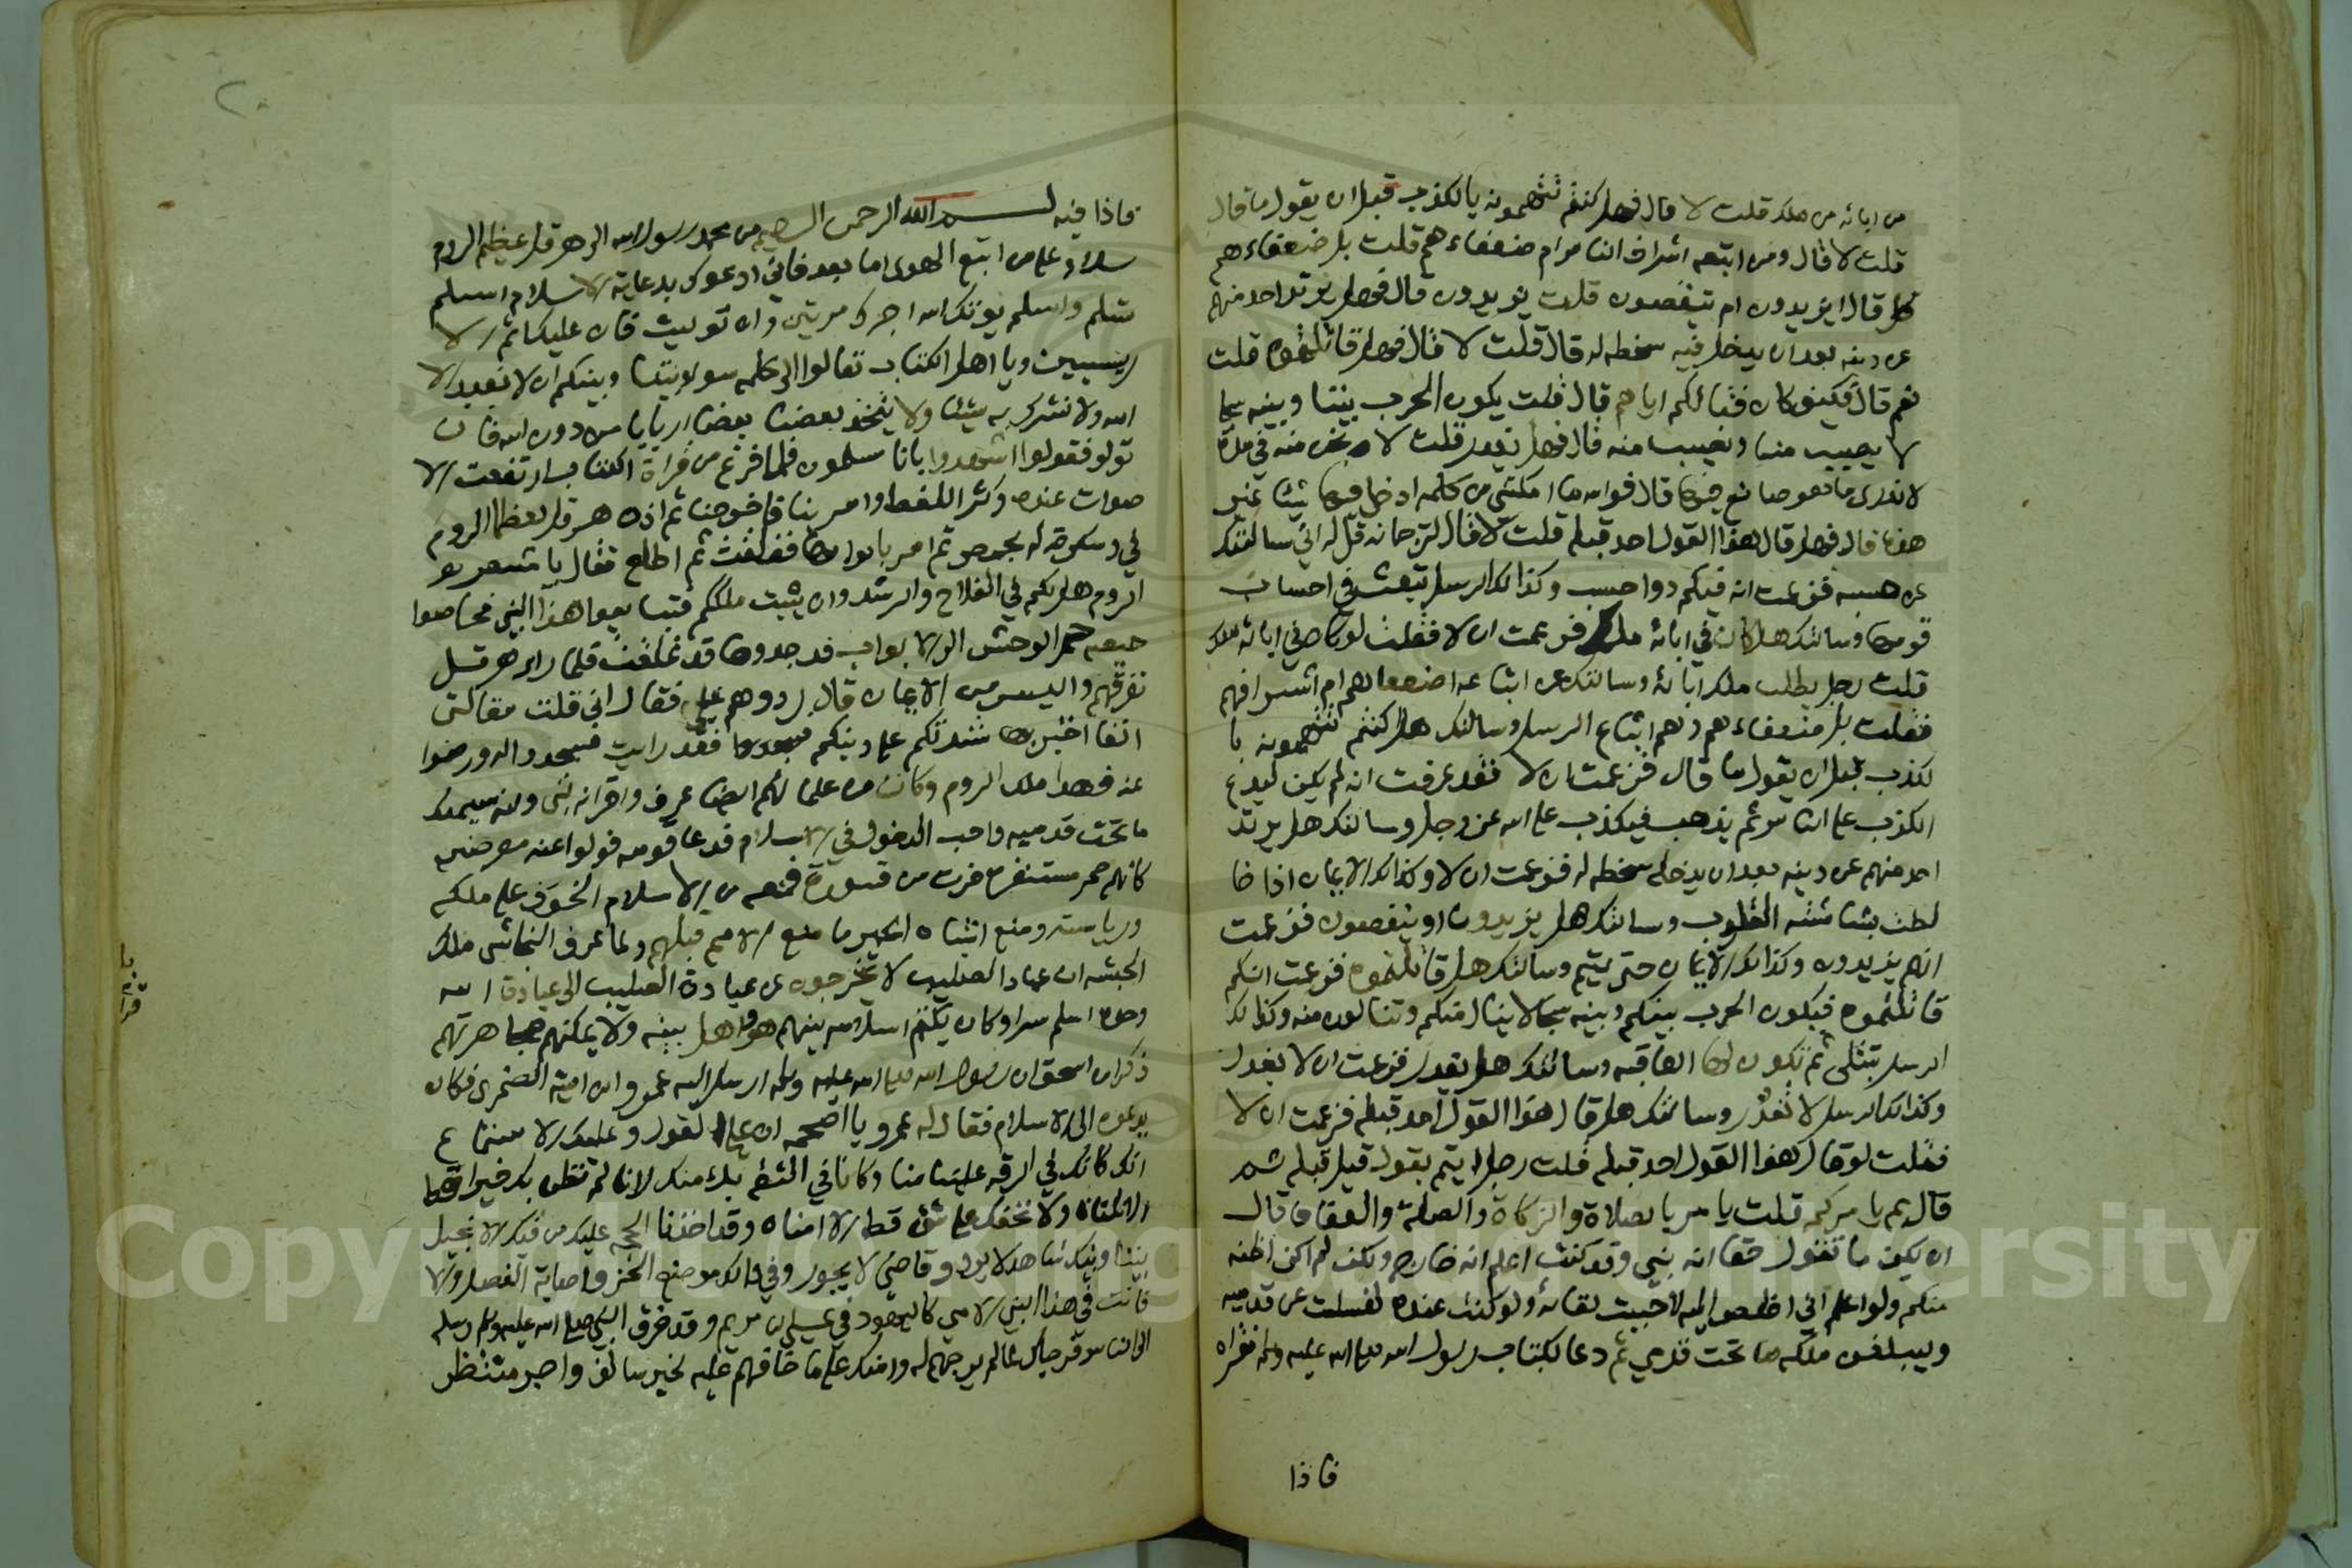 من ابائه من ملك قلت لا قال فهل كنتم تتهمونه بالكذب قبل ان يقول ما قال
قلت لا قال ومن اتبعه اشراف الناس ام ضعفاءهم قلت بل ضعفاءهم
قال ايزيدون ام ينقصون قلت يزيدون قال فهل يرتد احد منهم
عن دينه بعد ان يدخل فيه سخطه له قال قلت لا قال فهل قاتلتموه قلت
نعم قال فكيف كان قتالكم اياهم قال قلت يكون الحرب بيننا وبينه سجا
لا يصيب منا ونصيب منه قال فهل يغدر قلت لا ونحن منه في مدة
لا ندرى ما هو صانع فيها قال فوالله ما امكنني من كلمه ادخل فيها شيئا غير
هذه قال فهل قال هذا القول احد قبله قلت لا قال لترجمانه قل له اني سالتك
عن حسبه فزعمت انه فيكم ذوا حسب وكذالك الرسل تبعث في احساب
قومها وسالتك هل كان في ابائه ملك فزعمت ان لا فقلت لو كان في ابائه ملك
قلت رجل يطلب ملك ابائه وسالتك عن اتباعه اضعفاهم ام اشرافهم
فقلت بل ضعفاءهم وهم اتباع الرسل وسالتك هل كنتم تتهمونه با
لكذب قبل ان يقول ما قال فزعمت ان لا فقد عرفت انه لم يكن ليدع
الكذب على الناس ثم يذهب فيكذب على الله عز وجل وسالتك هل يرتد
احد منهم عن دينه بعد ان يدخله سخطه له فزعمت ان لا وكذالك الايمان اذا خا
لطت بشاشته القلوب وسالتك هل يزيدون او ينقصون فزعمت
انهم يزيدون وكذالك الايمان حتى يتم وسالتك هل قاتلتموه فزعمت انكم
قاتلتموه فيكون الحرب بينكم وبينه سجالا ينال منكم وتنالون منه وكذالك
الرسل تبتلى ثم تكون لها العاقبه وسالتك هل يغدر فزعمت ان لا يغدر
وكذالك الرسل لا تغدر وسالتك هل قال هذا القول احد قبله فزعمت ان لا
فقلت لو قال هذا القول احد قبله قلت رجل ايتم بقول قيل قبله ثم
قال بم يامركم قلت يامر بالصلاة والزكاة والصلة والعفاف قال
ان يكن ما تقول حقا انه نبي وقد كنت اعلم انه خارج ولكن لم اكن اظنه
منكم ولو اعلم اني اخلص اليه لاحببت لقائه ولو كنت عنده لغسلت عن قدميه
وليبلغن ملكه ما تحت قدمي ثم دعا بكتاب رسول الله صلى الله عليه وسلم فقراه
فاذا
فاذا فيه بسم الله الرحمن الرحيم من محمد رسول الله الى هرقل عظيم الروم
سلام على من اتبع الهدى اما بعد فاني ادعوك بدعاية الاسلام اسلم
تسلم واسلم يوتك الله اجرك مرتين وان توليت فان عليك اثم الا
ريسيين ويا اهل الكتاب تعالوا الى كلمه سواء بيننا وبينكم ان لا نعبد الا
الله ولا نشرك به شيئا ولا يتخذ بعضنا بعضا اربابا من دون الله فان
تولو فقولوا اشهدوا بانا مسلمون فلما فرغ من قراة الكتاب ارتفعت الا
صوات عنده وكثر اللغط وامر بنا فاخرجنا ثم اذن هرقل لعظما الروم
في دسكرة له بحمص ثم امر بابوابها فغلقت ثم اطلع فقال يا معشر
الروم هل لكم في الفلاح والرشد وان يثبت ملككم فتبايعوا هذا النبي فحاصوا
حيصه حمر الوحش الى الابواب فوجدوها قد غلقت فلما راى هرقل
نفرتهم وايس من الايمان قال ردوهم علي فقال اني قلت مقالتي
انفا اختبر بها شدتكم على دينكم فقد رايت فسجدوا له ورضوا
عنه فهذا ملك الروم وكان من علمائهم ايضا عرف واقر انه نبي وانه سيملك
ما تحت قدميه واحب الدخول في الاسلام فدعا قومه فولوا عنه معرضين
كانهم حمر مستنفرة فرت من قسورة فمنعه من الاسلام الخوف على ملكه
ورياسته ومنع اشباه الحمير ما منع الامم قبلهم ولما عرف النجاشى ملك
الحبشه ان عباد الصليب لا يخرجون عن عبادة الصليب الى عبادة الله
وحده اسلم سرا وكان يكتم اسلامه بينهم هو واهل بيته ولا يمكنهم مجاهرتهم
ذكر ابن اسحق ان رسول الله صلى الله عليه وسلم ارسل اليه عمرو ابن امية الضمرى فكان
يدعوه الى الاسلام فقال له عمرو يا اصحمه ان علي القول وعليك الاستماع
انك كانك في الرقه علينا منا وكانا في الثقة بك منك لانا لم نظن بك خيرا قط
الا نلناه ولا نخفك على شئ قط الا امناه وقد اخذنا الحجه عليك من فيك الانجيل
بيننا وبينك شاهد لا يرد وقاضي لا يجور وفي ذالك موضع الحز واصابة الفصل والا
فانت في هذا النبي الامي كاليهود في عيسى ابن مريم وقد فرق النبي صلى الله عليه وسلم رسله
الى الناس فرجاك لما لم يرجهم له وامنك على ما خافهم عليه لخير سالف واجر منتظر